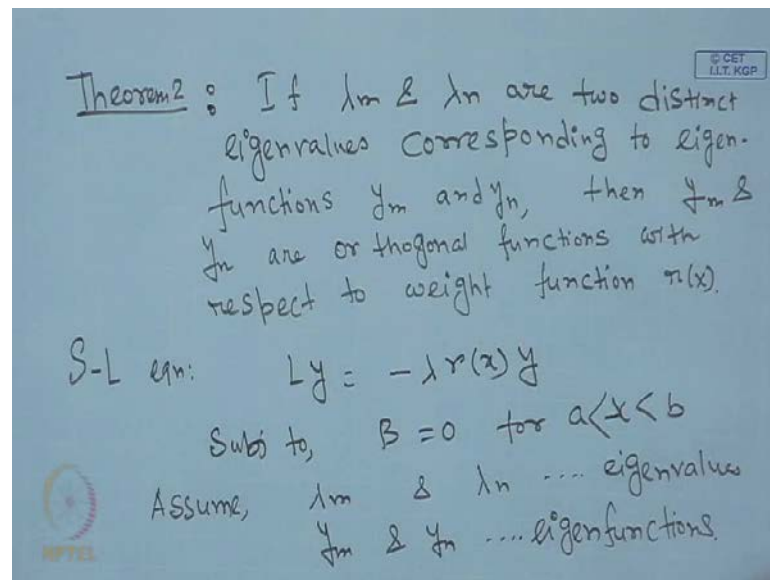 © CET
I.I.T. KGP
Theorem 2 : If λm & λn are two distinct
eigenvalues corresponding to eigen-
functions ym and yn, then ym &
yn are orthogonal functions with
respect to weight function r(x).
S-L eqn: Ly = -λ r(x) y
Subj to, B = 0 for a < x < b
Assume, λm & λn .... eigenvalues
ym & yn .... eigenfunctions.
NPTEL